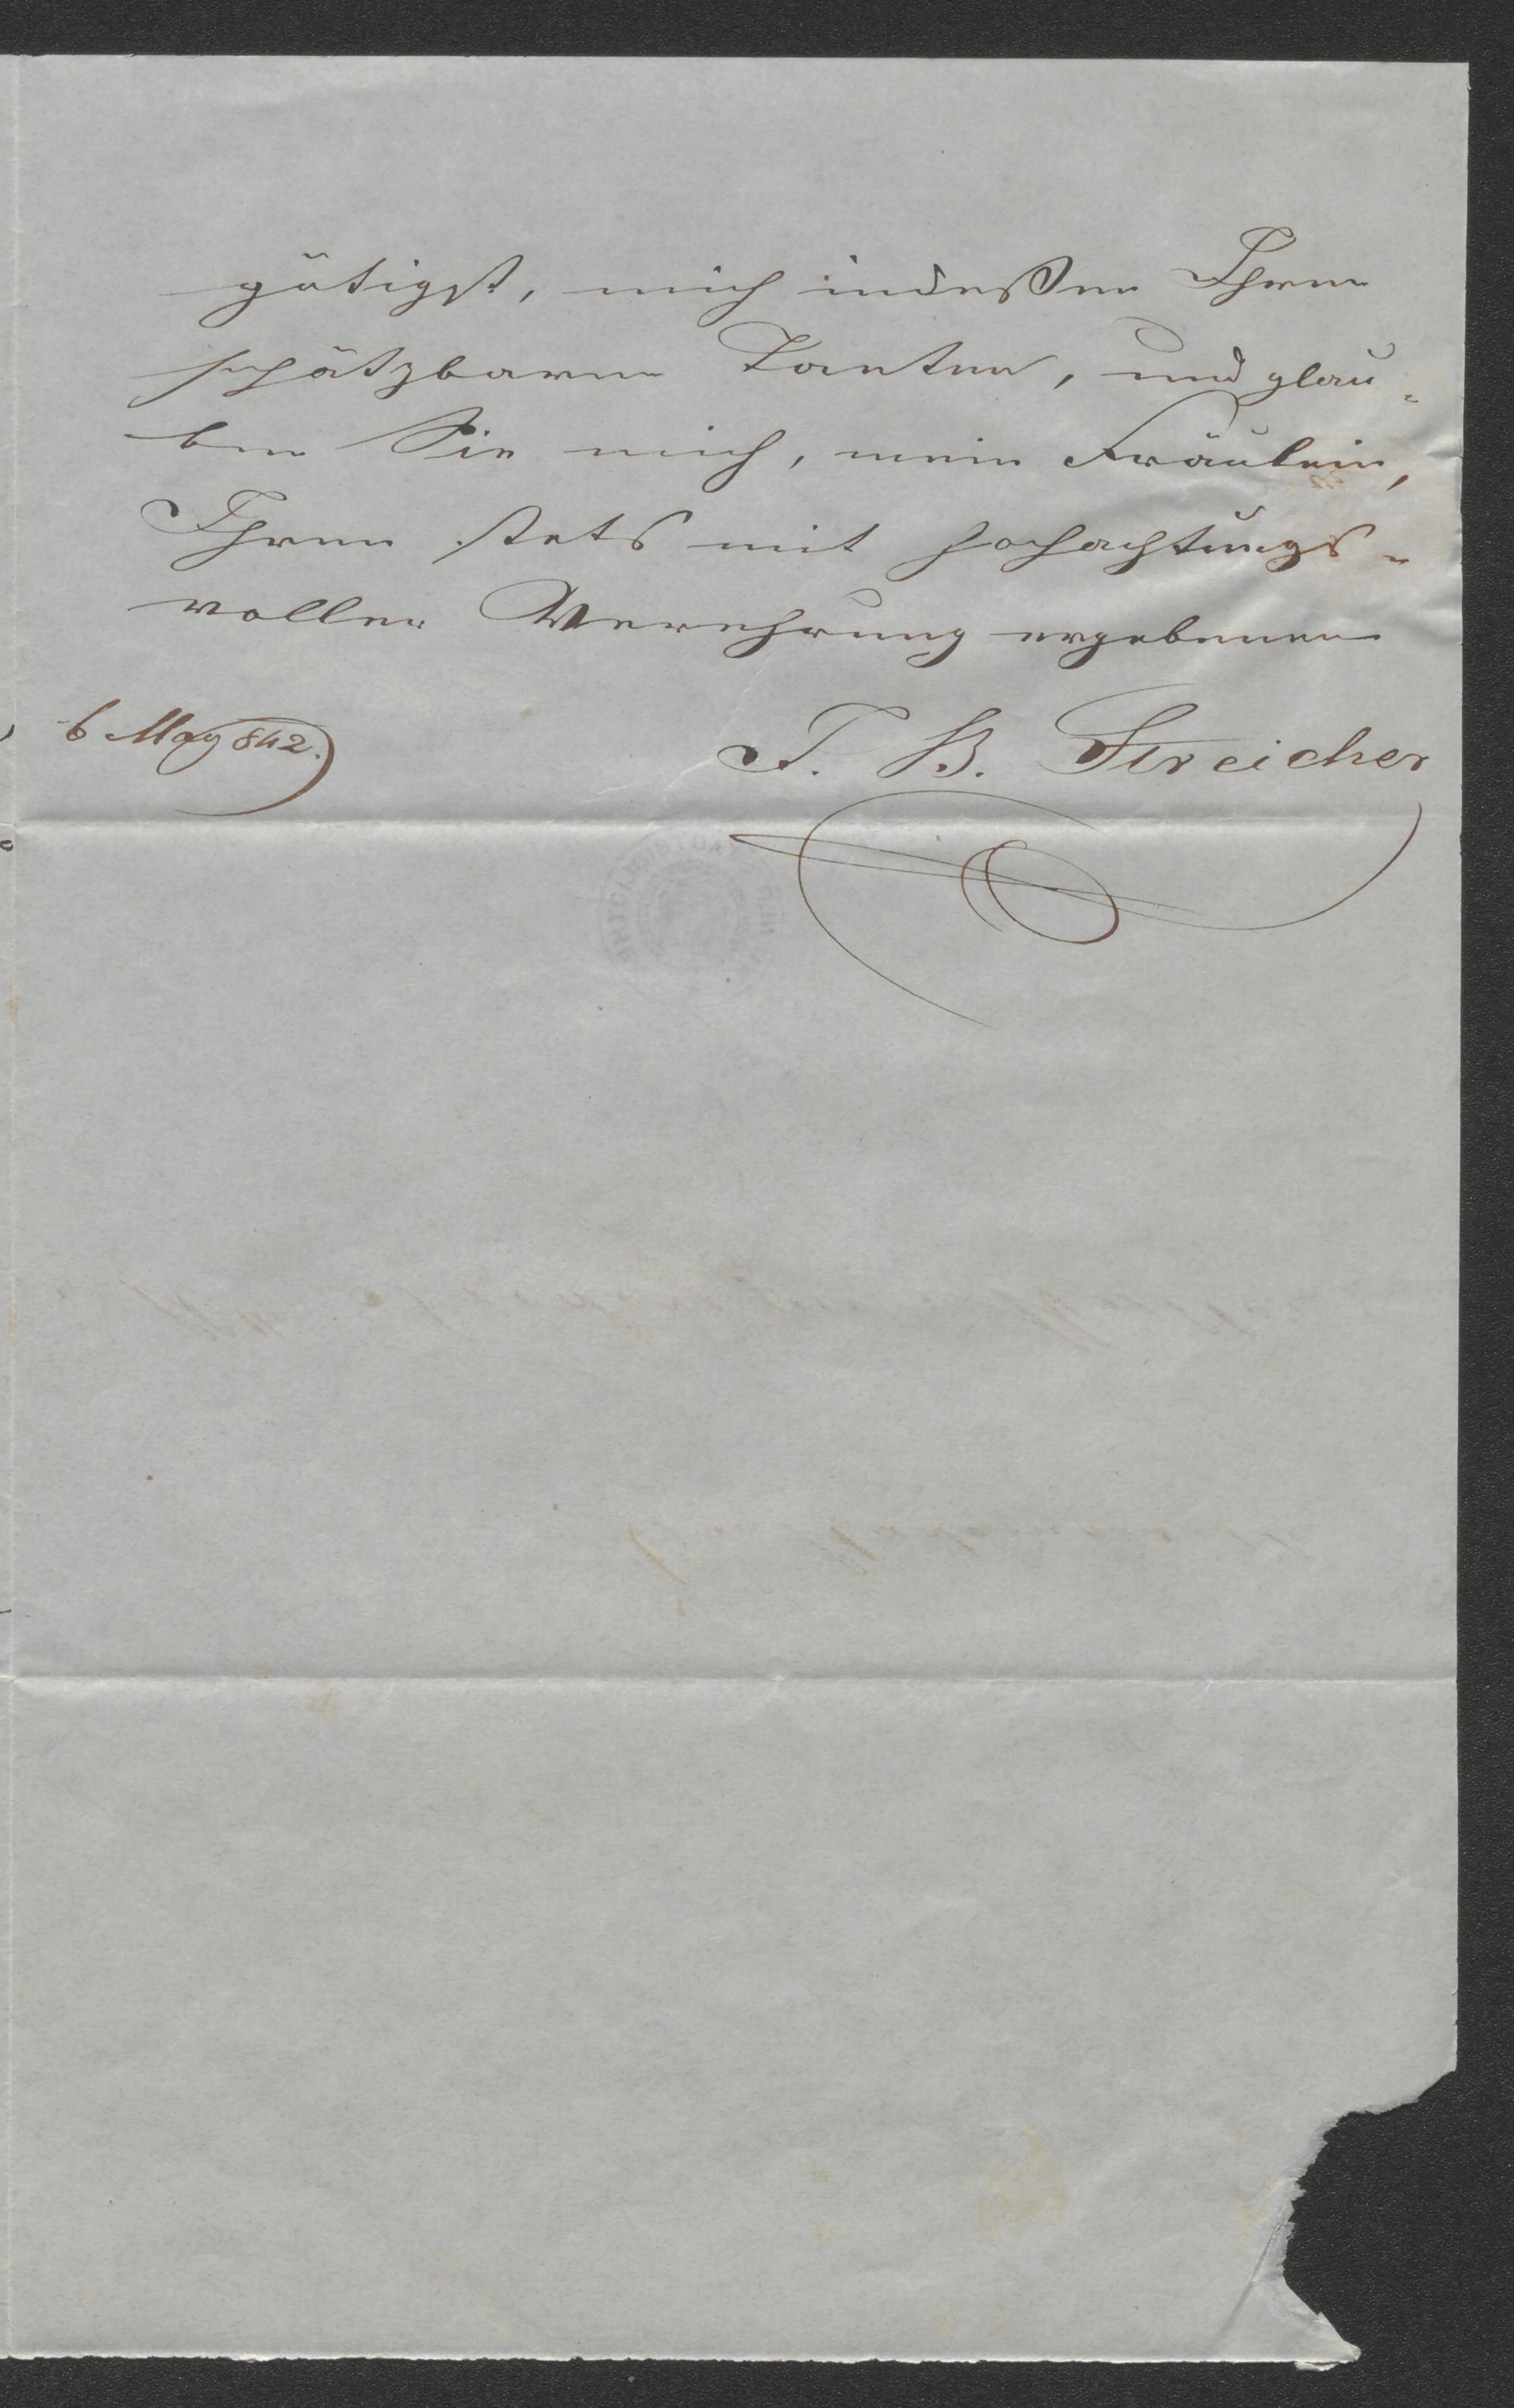 gütigst, mich indeßen Ihren
schätzbaren Tanten, und glau-
ben Sie mich, mein Fräulein,
Ihren stets mit hochachtungs-
voller Verehrung ergebenen
6 May 842.
J. B. Streicher